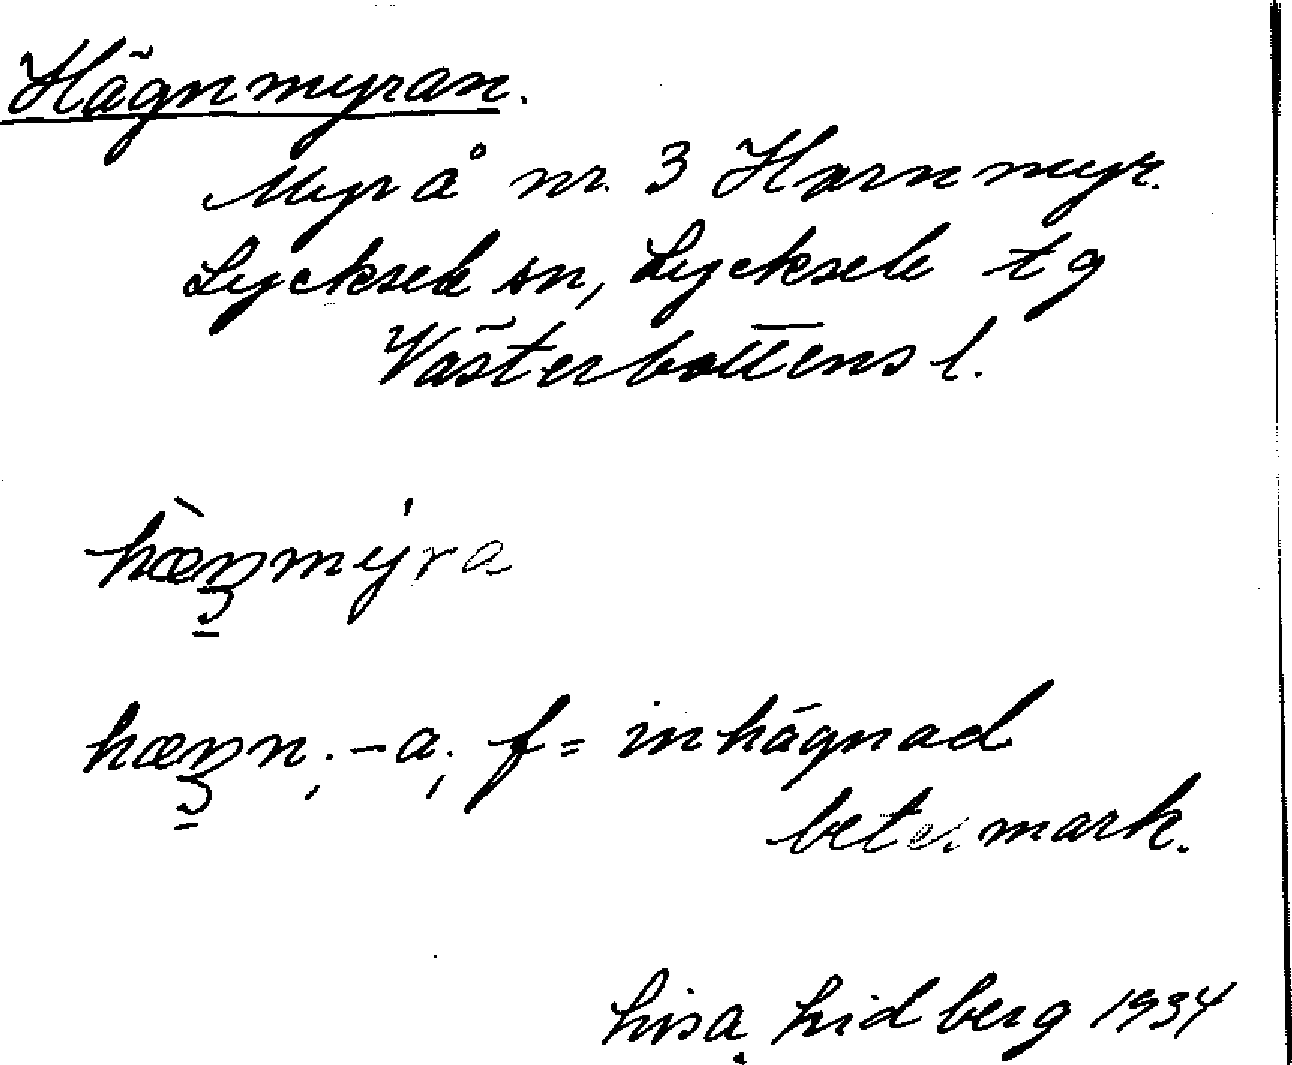 Hägnmyran.
Myr å nr. 3 Hornmyr.
Lycksele sn, Lycksele tg
Västerbottens l.
hæŋmyra
hæŋn, -a, f = inhägnad
betesmark.
Lisa Lidberg 1934